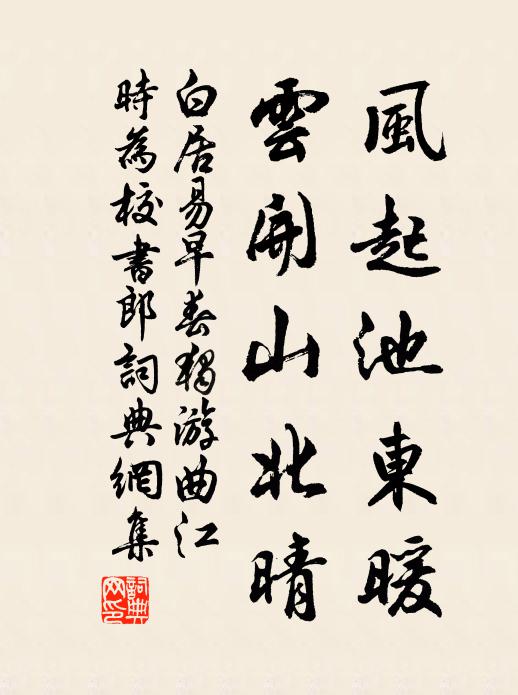 風起池東暖
雲開山北晴
白居易早春獨游曲江
時為校書郎詞典網集
詞典網印